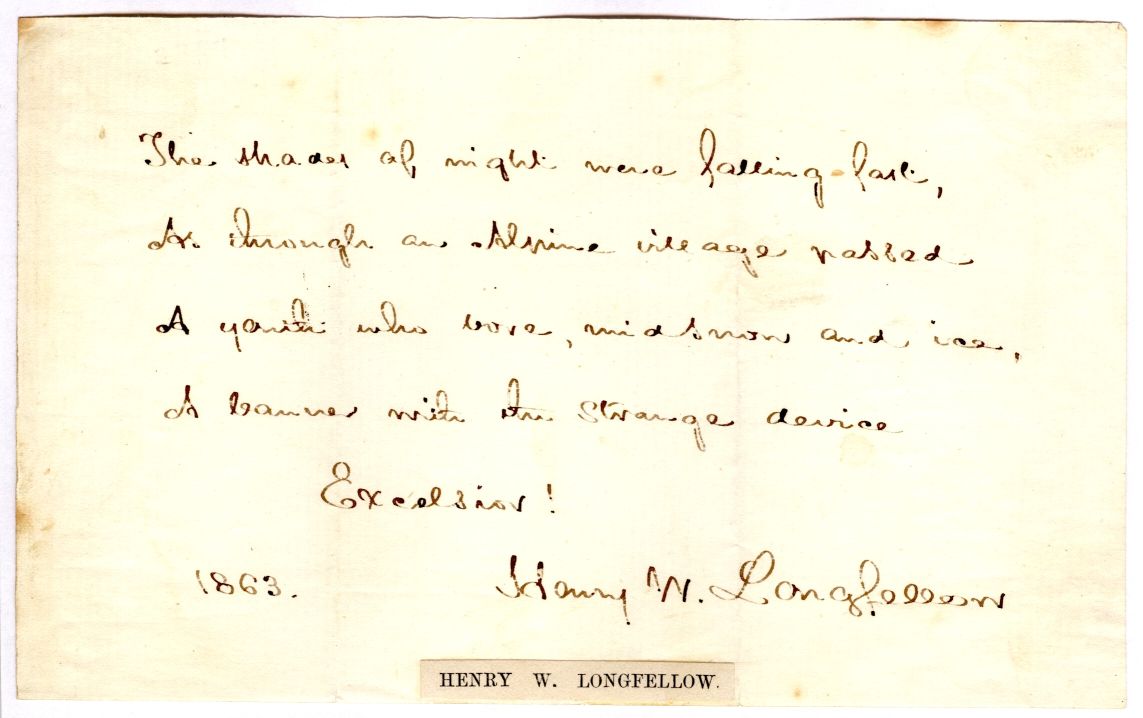 The shades of night were falling fast,
As through an Alpine village passed
A youth who bore, mid snow and ice,
A banner with the strange device
Excelsior!
1863. Henry W. Longfellow
HENRY W. LONGFELLOW.